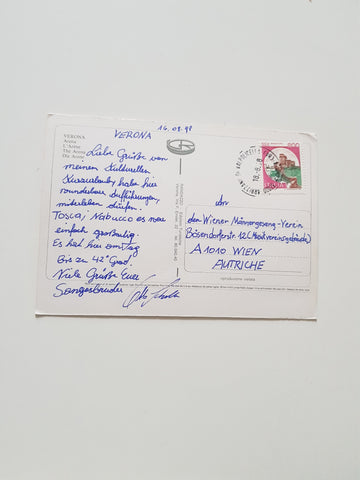 16.08.98
VERONA
VERONA
Arena
L'Arène
The Arena
Die Arena
Liebe Grüße von
meinen Kulturellen
Kurzurlaub habe hier
wunderbare Aufführungen,
miterleben dürfen.
Tosca, Nabucco es war
einfach großartig.
Es hat hier am Tag
bis zu 42° Grad.
Viele Grüße Euer
Sangesbruder
An
den Wiener Männergesang-Verein
Bösendorferstr. 12 (Musikvereinsgebäude)
A 1010 WIEN
AUTRICHE